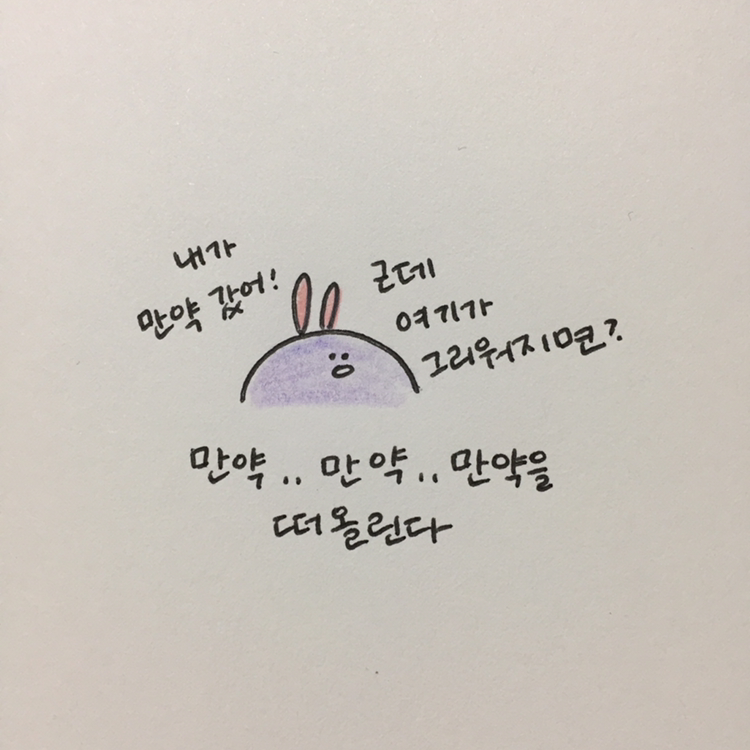 내가
만약 갔어!
근데
여기가
그리워지면?
만약.. 만약.. 만약을
떠올린다